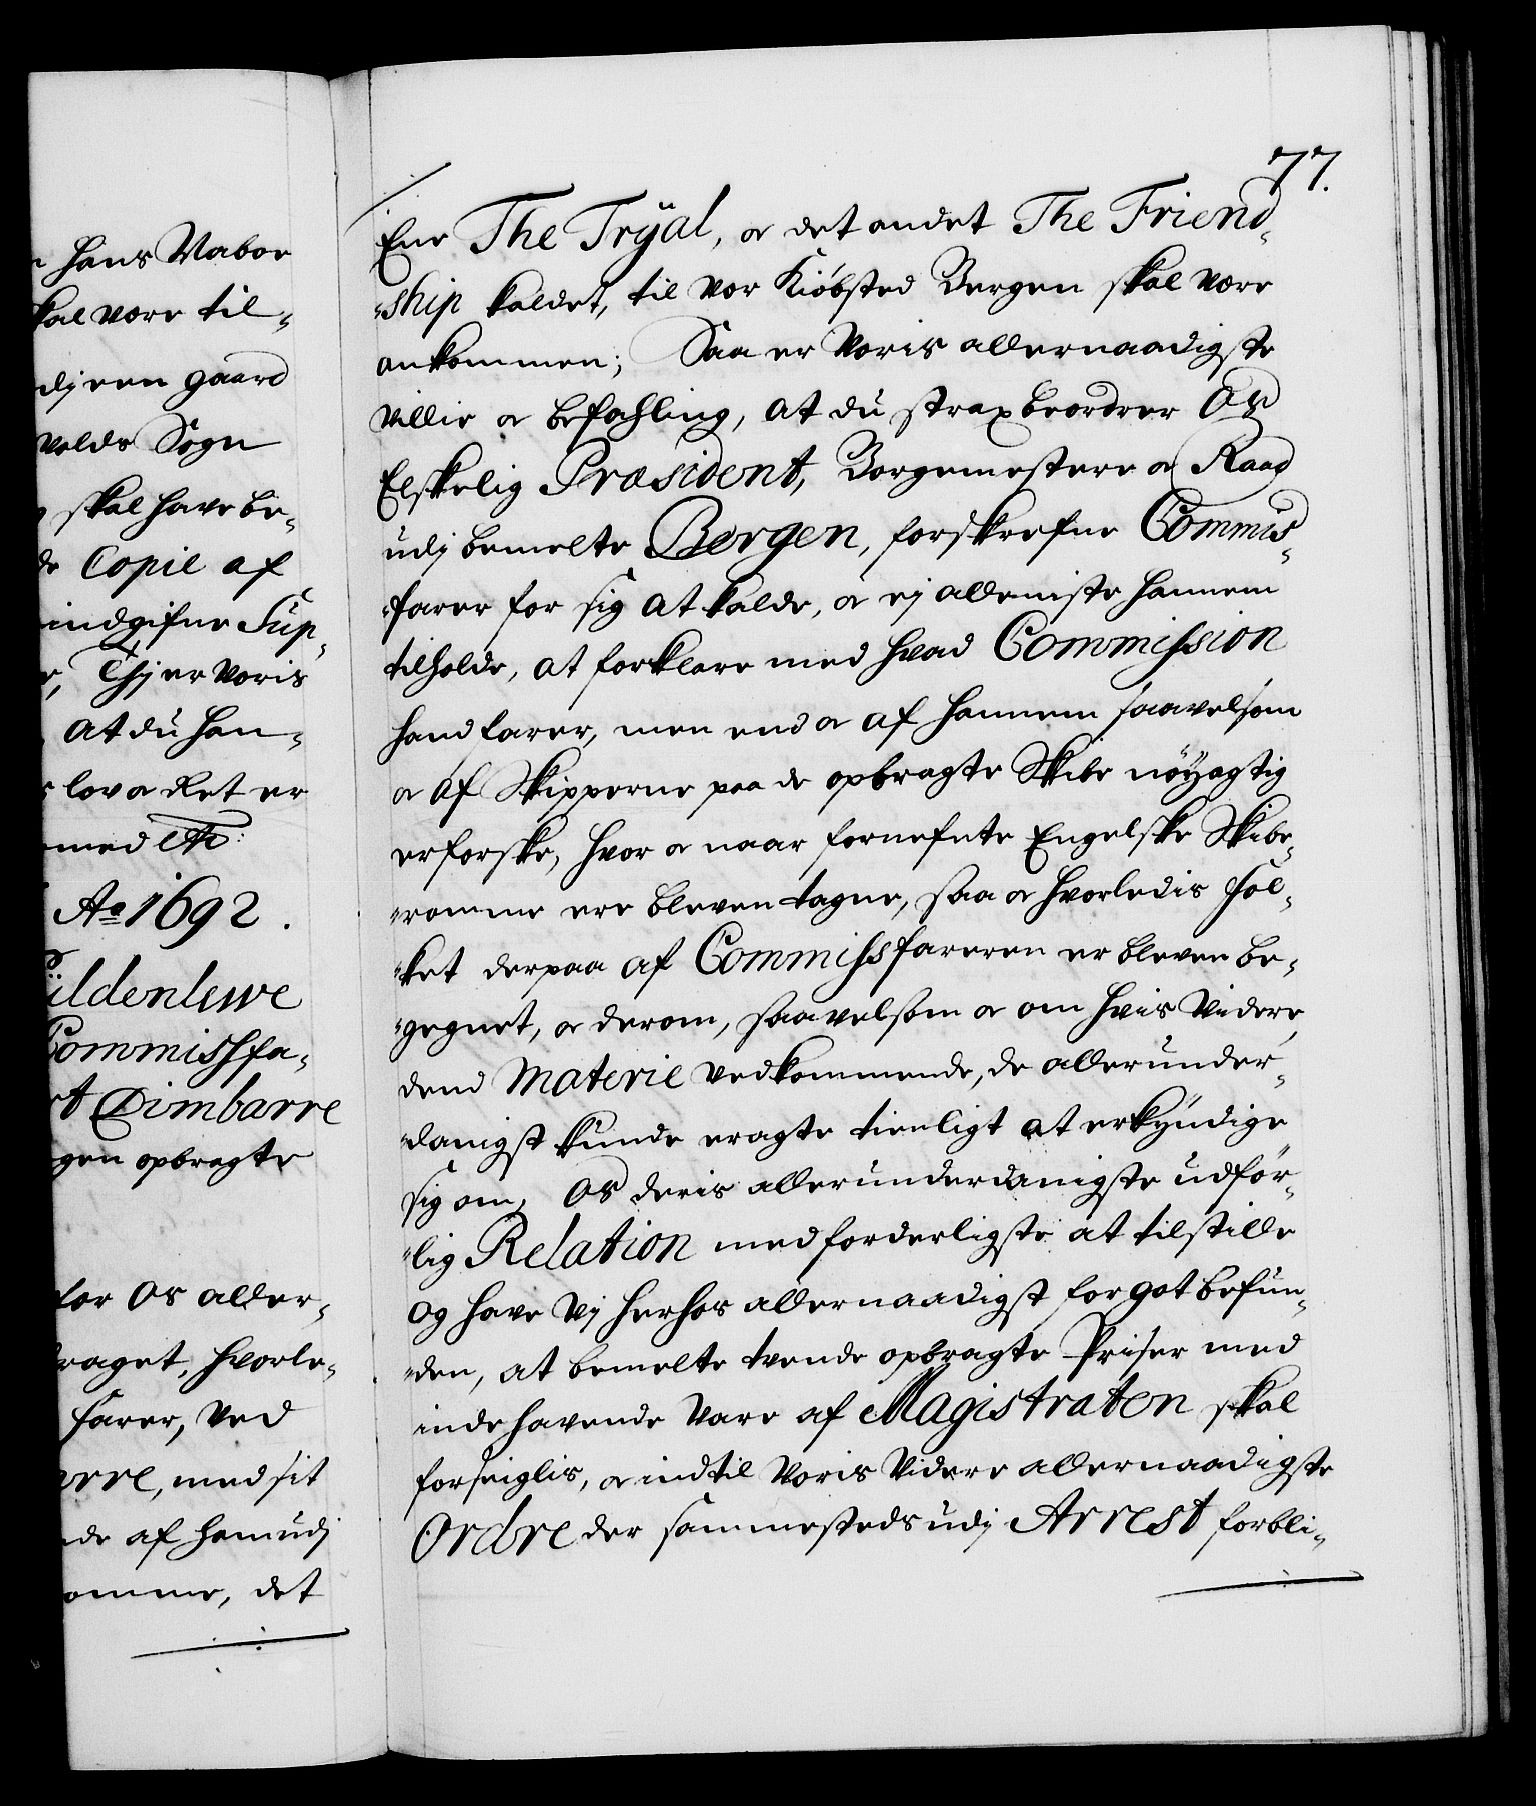 hans Nabor
skal være til-
udj een gaard
velds Sogn
skal have be-
Copie af
indgifne Sup-
Thj er Voris
at du han-
lov og Ret er
med etc:
Ao 1692.
Güldenlewe
Commissfa-
Dimbarre
gen opbragte
for Os aller-
draget, hvorle-
farer, Ved
arre, med sit
af ham udj
komme, det
77.
Ene The Tryal, og det andet The Friend-
ship kaldet, til Vor Kiøbsted Bergen skal være
ankommen; Saa er Voris allernaadigste
Villie og befahling, at du strax beordrer Os
Elskelig Præsident, Borgemestere og Raad
udj bemelte Bergen, forskrefne Commis-
farer for sig at kalde, og ej alleeniste hannem
tilholde, at forklare med hvad Commission
hand farer, men end og af hannem saavelsom
og af Skipperne paa de opbragte Skibe nøyagtig
erforske, hvor og naar fornefnte Engelske Skibe-
romme ere bleven tagne, saa og hvorledis Fol-
ket derpaa af Commissfareren er bleven be-
gegnet, og derom, saavelsom og om hvis Videre,
dend Materie vedkommende, de allerunder-
danigst kunde eragte tienligt at erkyndige
sig om, Os deris allerunderdanigste udfør-
lig Relation med forderligste at tilstille
og have Vj herhos allernaadigst for got befun-
den, at bemelte tvende opbragte Priser med
indehavende Vare af Magistraten skal
forseiglis, og indtil Voris Videre allernaadigste
Ordre der sammesteds udj Arrest forbli-